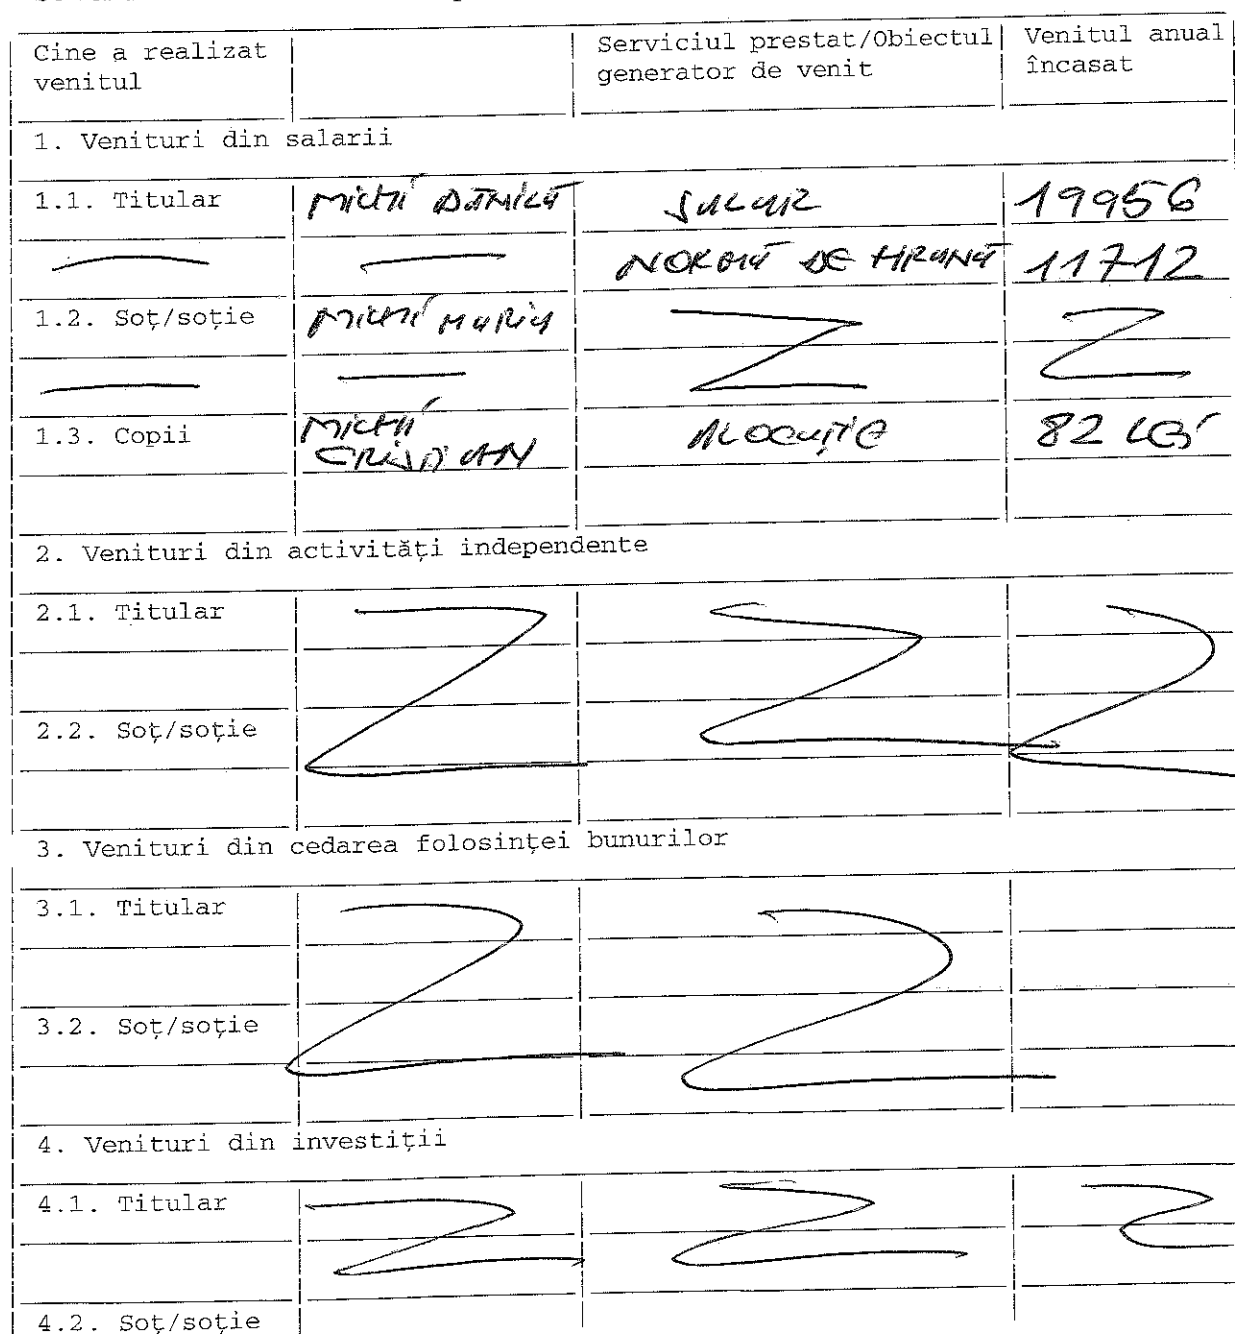 Cine a realizat venitul | | Serviciul prestat/Obiectul generator de venit | Venitul anual încasat
1. Venituri din salarii
1.1. Titular | MICHII DĂNILĂ | SALAR | 19956
NORMĂ DE HRANĂ | 11712
1.2. Soț/soție | MICHII MARIA
1.3. Copii | MICHII | ALOCAȚIE | 82 LEI
2. Venituri din activități independente
2.1. Titular
2.2. Soț/soție
3. Venituri din cedarea folosinței bunurilor
3.1. Titular
3.2. Soț/soție
4. Venituri din investiții
4.1. Titular
4.2. Soț/soție